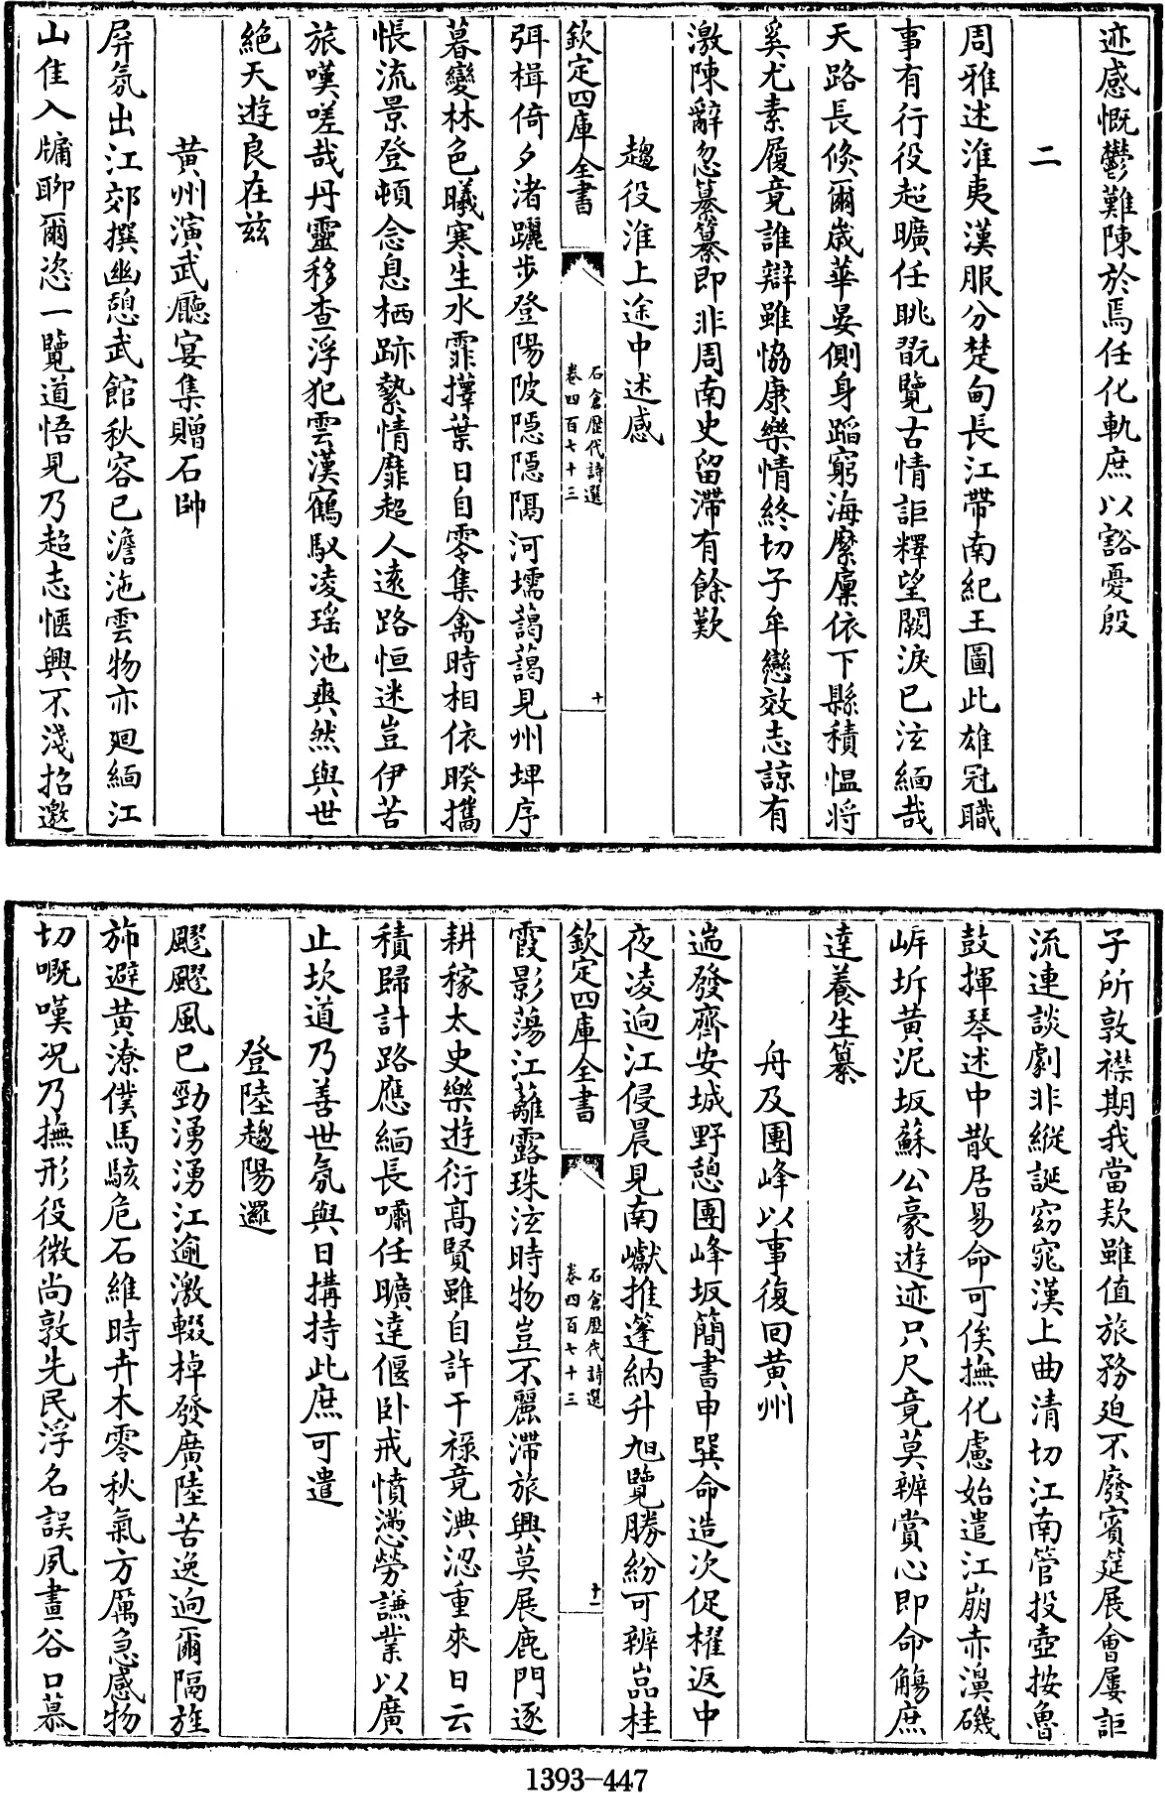 迹感慨鬱難陳於焉任化軌庶以豁憂殷
二
周雅述淮夷漢服分楚甸長江帶南紀王圖此雄冠職
事有行役超曠任眺翫覽古情詎釋望闕淚已泫緬哉
天路長倐爾歲華晏側身蹈窮海縻廩依下縣積愠將
奚尤素履竟誰辯雖恊康樂情終切子牟戀效志諒有
激陳辭忽纂纂即非周南史留滯有餘歎
趨役淮上途中述感
欽定四庫全書
石倉歷代詩選
卷四百七十三
十
弭楫倚夕渚躧步登陽陂隠隠隔河壖藹藹見州埤序
暮變林色曦寒生水霏擇葉日自零集禽時相依暌攜
悵流景登頓念息栖跡縶情靡超人遠路恒迷豈伊苦
旅嘆嗟哉丹靈移查浮犯雲漢鶴馭凌瑶池爽然與世
絶天遊良在兹
黄州演武廳宴集贈石帥
屏氛出江郊撰幽憩武館秋容已澹沲雲物亦廻緬江
山隹入牖聊爾恣一覽道悟見乃超志愜興不淺招邀
子所敦襟期我當欵雖值旅務廹不廢賓筵展會屢詎
流連談劇非縱誕窈窕漢上曲清切江南管投壺按魯
鼓揮琴述中散居易命可俟撫化慮始遣江崩赤濞磯
㟁坼黄泥坂蘇公豪遊迹只尺竟莫辨賞心即命觴庶
逹養生纂
舟及團峰以事復回黄州
遄發齊安城野憩團峰坂簡書申巽命造次促櫂返中
夜凌逈江侵晨見南巘推篷納升旭覽勝紛可辨嵓桂
欽定四庫全書
石倉歷代詩選
卷四百七十三
十一
霞影蕩江蘺露珠泫時物豈不麗滯旅興莫展鹿門逐
耕稼太史樂遊衍高賢雖自許干禄竟淟涊重來日云
積歸計路應緬長嘯任曠達偃卧戒憤懣勞謙業以廣
止坎道乃善世氛與日搆持此庶可遣
登陸趨陽邏
飂飂風已勁湧湧江逾激輟棹發廣陸苦逸逈爾隔旌
斾避黄潦僕馬駭危石維時卉木零秋氣方厲急感物
切嘅嘆况乃撫形役微尚敦先民浮名誤夙晝谷口慕
1393-447